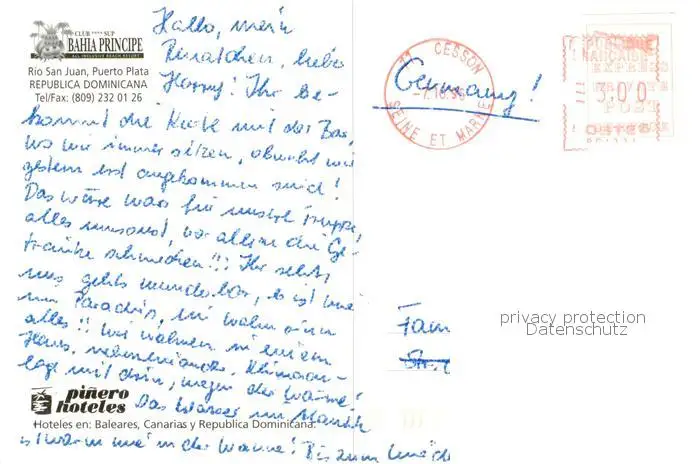 CLUB **** SUP
BAHIA PRINCIPE
ALL INCLUSIVE BEACH RESORT
Rio San Juan, Puerto Plata
REPUBLICA DOMINICANA
Tel/Fax: (809) 232 01 26
Hallo, mein
liebes
Harry! Ihr be-
kommt die Karte mit der Bar,
wo wir immer sitzen, obwohl wir
gestern erst angekommen sind!
Das wäre was für unsere Truppe,
alles umsonst, vor allem die Ge-
tränke schmecken!!! Ihr seht,
uns gehts wunderbar, es ist wie
im Paradies,
alles!! Wir wohnen in einem
Haus, nebeneinander,
mit drin, wegen der Wärme!
Das Wasser im
ist warm wie in der Wanne! Bis zum
piñero
hoteles
Hoteles en: Baleares, Canarias y Republica Dominicana.
CESSON
SEINE ET MARNE
Germany!
Fam
privacy protection
Datenschutz